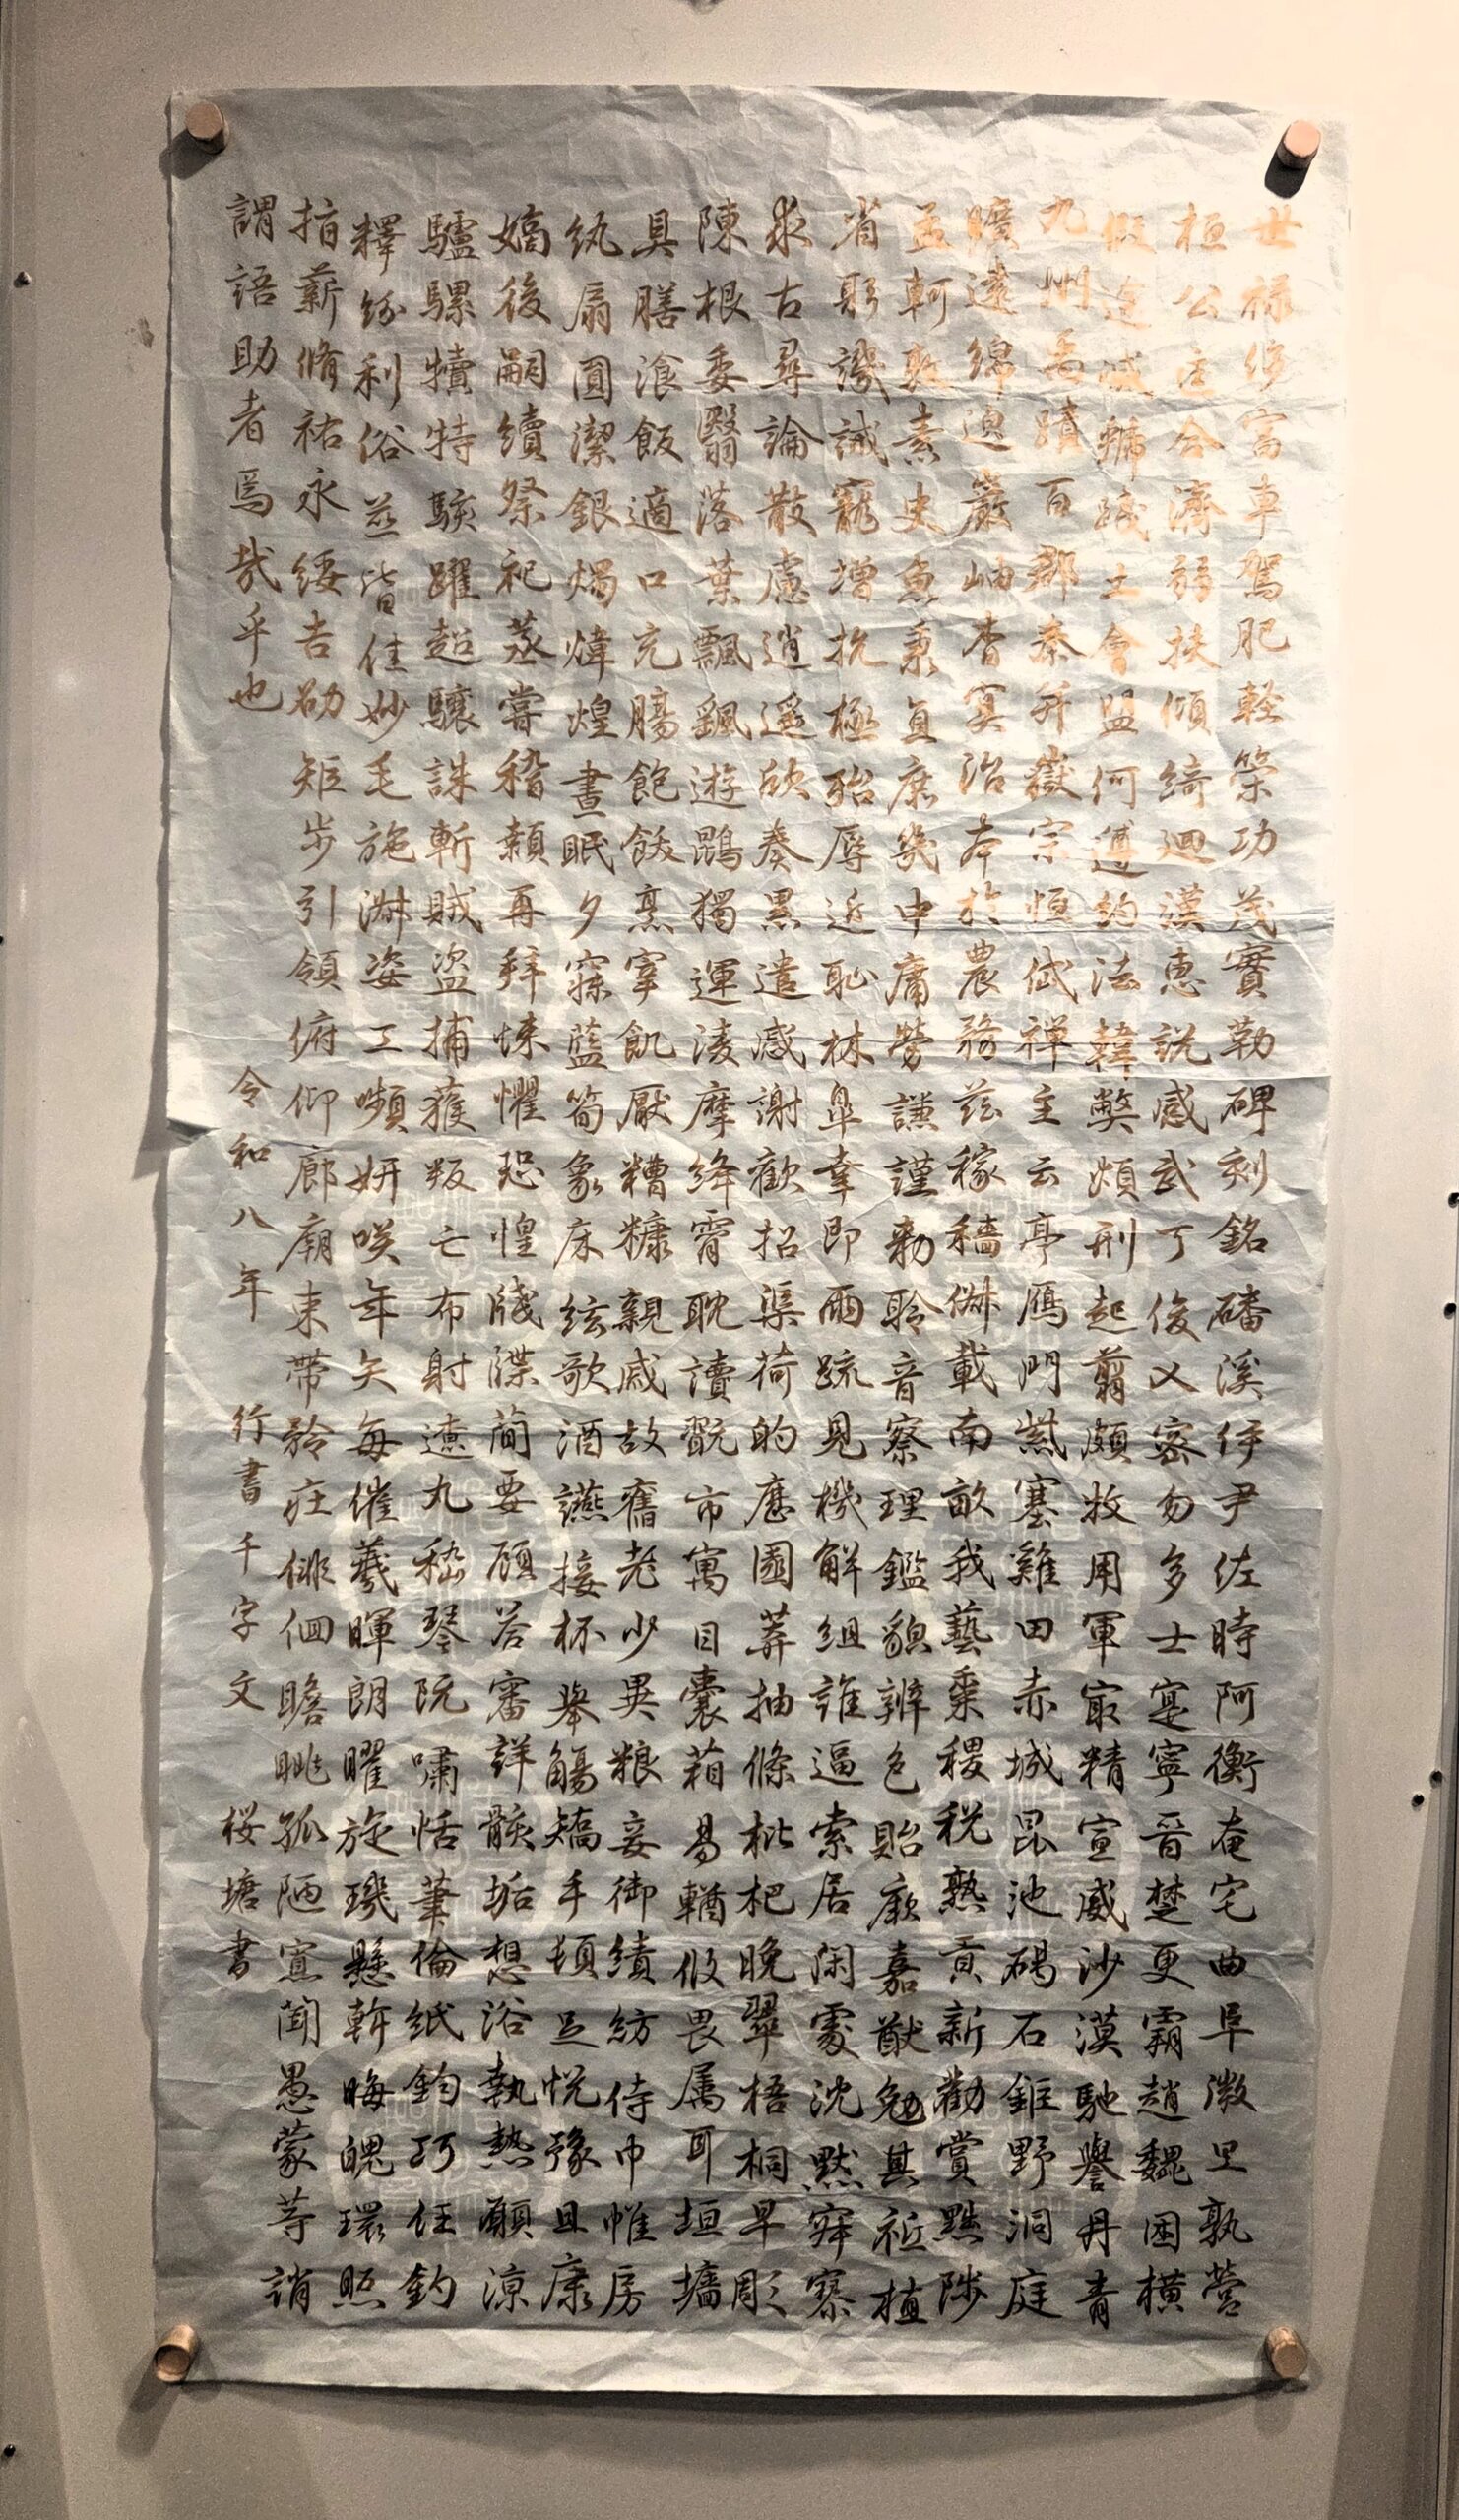 世禄侈富車駕肥軽策功茂實勒碑刻銘磻溪伊尹佐時阿衡奄宅曲阜微旦孰營
桓公匡合濟弱扶傾綺迴漢恵説感武丁俊乂密勿多士寔寧晉楚更霸趙魏困横
假途滅虢踐土會盟何遵約法韓弊煩刑起翦頗牧用軍最精宣威沙漠馳譽丹青
九州禹蹟百郡秦并嶽宗恒岱禅主云亭雁門紫塞雞田赤城昆池碣石鉅野洞庭
曠遠綿邈巖岫杳冥治本於農務茲稼穡俶載南畝我藝黍稷税熟貢新勸賞黜陟
孟軻敦素史魚秉直庶幾中庸勞謙謹勅聆音察理鑑貌辨色貽厥嘉猷勉其祗植
省躬譏誡寵增抗極殆辱近恥林皐幸即兩疏見機解組誰逼索居閑處沈默寂寥
求古尋論散慮逍遥欣奏累遣慼謝歡招渠荷的歴園莽抽條枇杷晩翠梧桐早彫
陳根委翳落葉飄颻遊鵾獨運凌摩絳霄耽讀翫市寓目囊箱易輶攸畏属耳垣墻
具膳飡飯適口充腸飽飫烹宰飢厭糟糠親戚故舊老少異粮妾御績紡侍巾帷房
紈扇圓潔銀燭煒煌晝眠夕寐藍筍象床絃歌酒讌接杯舉觴矯手頓足悦豫且康
嫡後嗣續祭祀蒸嘗稽顙再拜悚懼恐惶牋牒簡要顧答審詳骸垢想浴執熱願涼
驢騾犢特駭躍超驤誅斬賊盗捕獲叛亡布射遼丸嵇琴阮嘯恬筆倫紙鈞巧任釣
釋紛利俗並皆佳妙毛施淑姿工嚬妍咲年矢毎催羲暉朗曜旋璣懸斡晦魄環照
指薪脩祐永綏吉劭矩歩引領俯仰廊廟束帯矜荘徘徊瞻眺孤陋寡聞愚蒙等誚
謂語助者焉哉乎也
令和八年 行書千字文 桜塘書